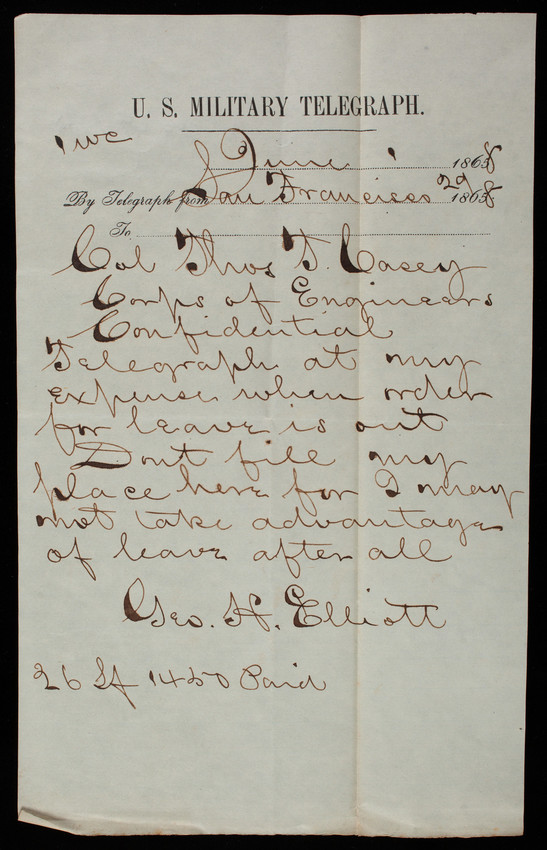 U. S. MILITARY TELEGRAPH.
June 1 1868
By Telegraph from San Francisco 29 1868
To
Col Thos T. Casey
Corps of Engineers
Confidential
Telegraph at my
expense when order
for leave is out
Dont fill my
place here for I may
not take advantage
of leave after all
Geo. H. Elliott
26 1450 Paid